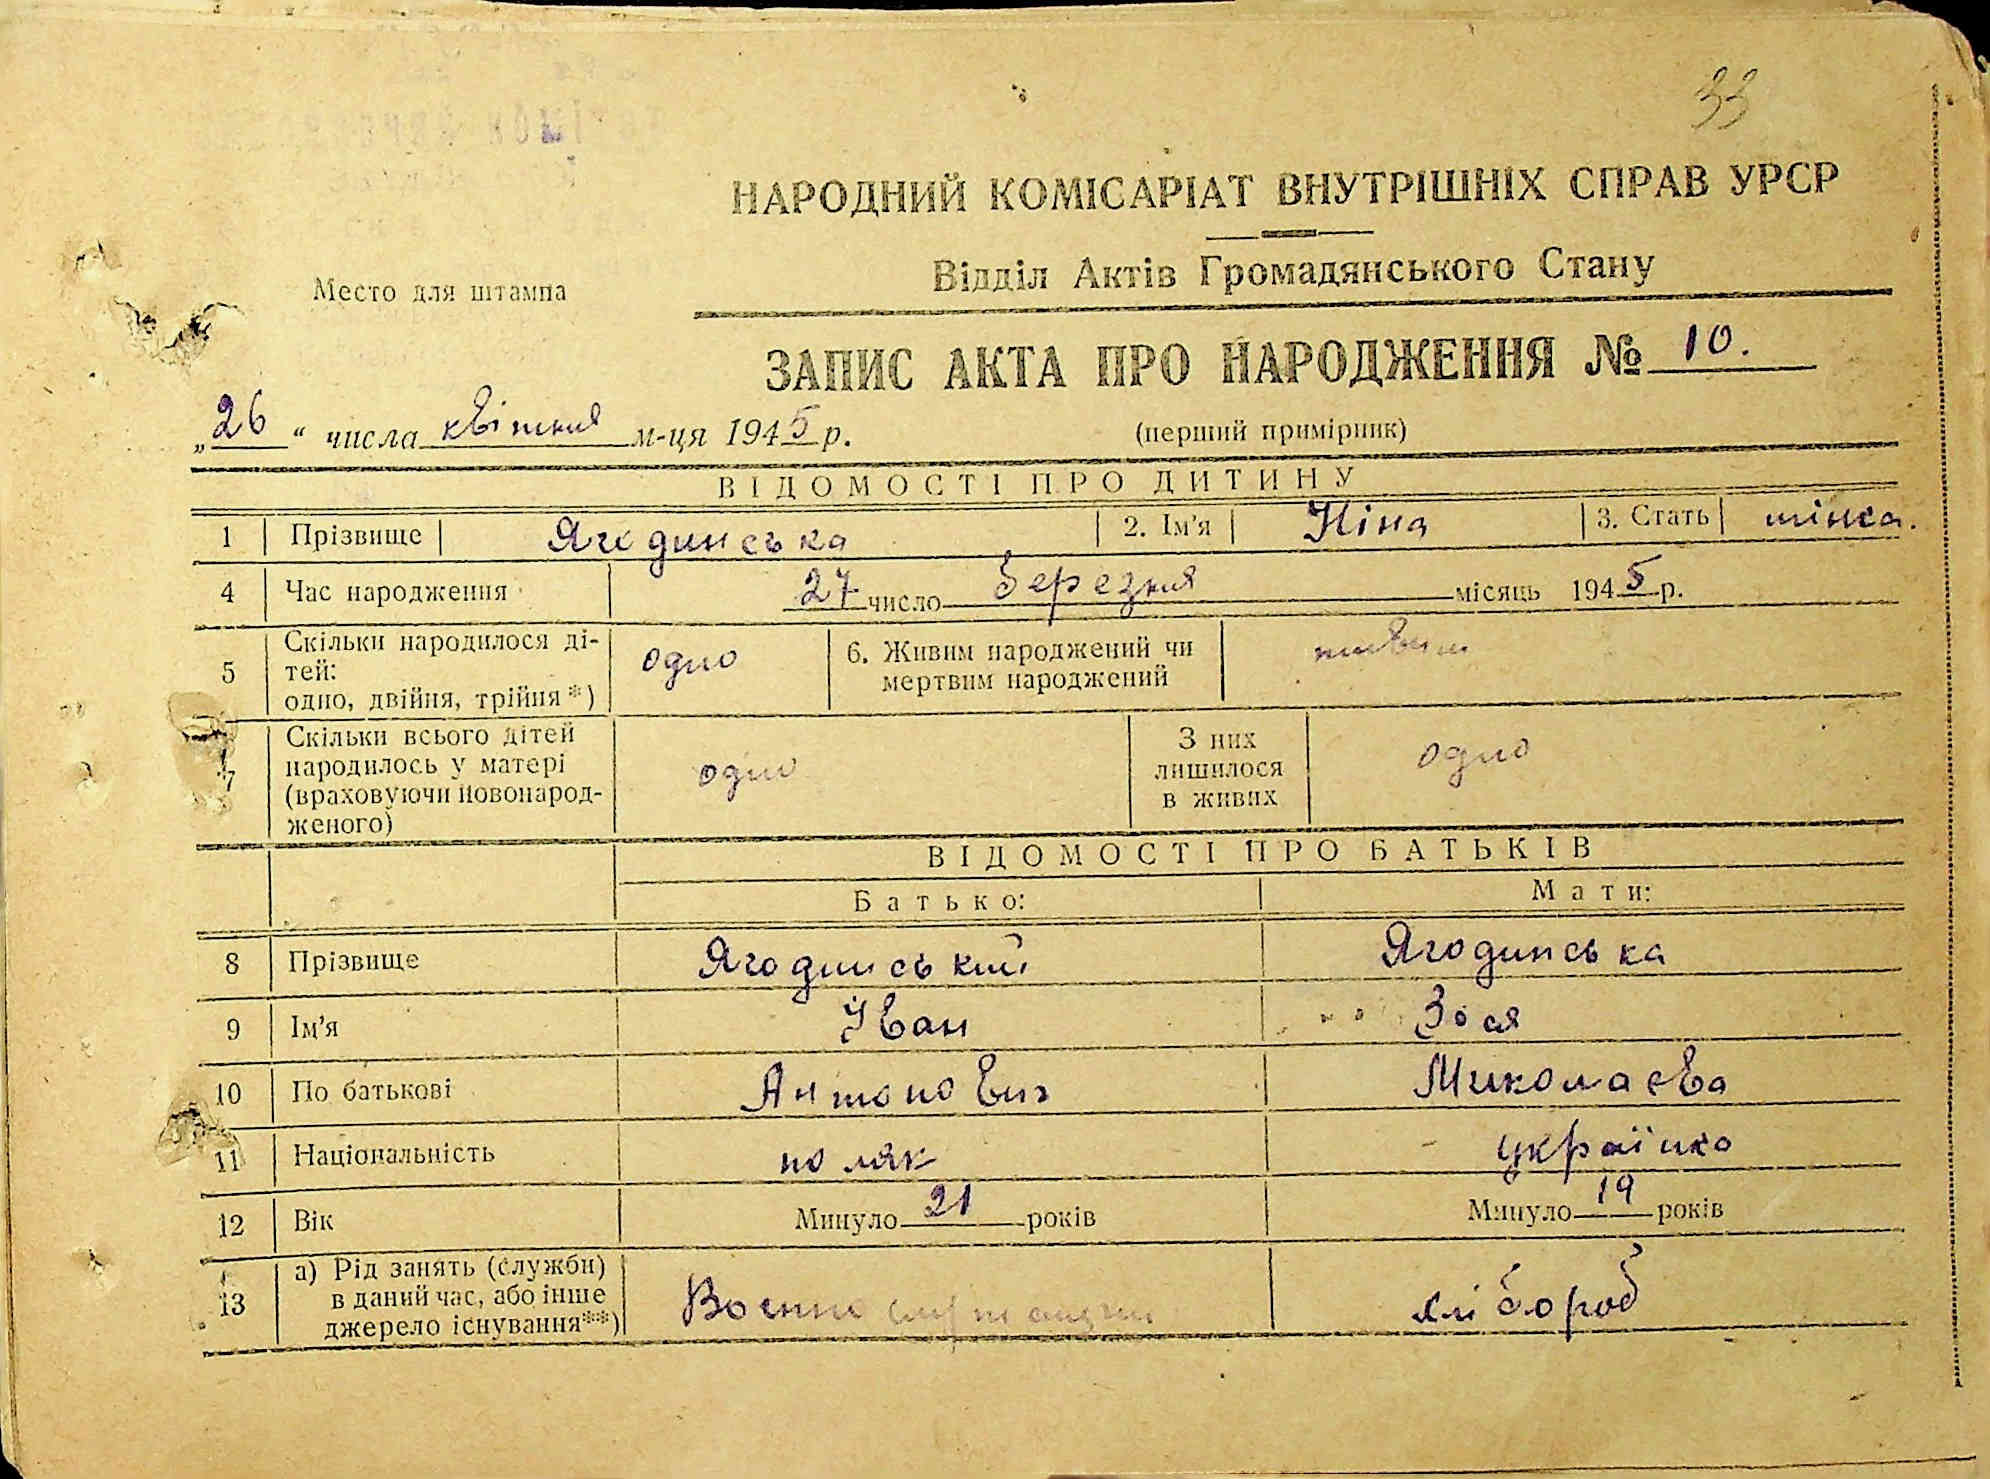 33
НАРОДНИЙ КОМІСАРІАТ ВНУТРІШНІХ СПРАВ УРСР
Відділ Актів Громадянського Стану
Место для штампа
ЗАПИС АКТА ПРО НАРОДЖЕННЯ № 10.
„26“ числа квітня м-ця 1945 р.
(перший примірник)
ВІДОМОСТІ ПРО ДИТИНУ
1 Прізвище Ягодинська 2. Ім'я Ніна 3. Стать жінка.
4 Час народження 27 число березня місяць 1945 р.
5 Скільки народилося ді-
тей:
одно, двійня, трійня*) одно 6. Живим народжений чи
мертвим народжений живим
7 Скільки всього дітей
народилось у матері
(враховуючи новонарод-
женого) одно З них
лишилося
в живих одно
ВІДОМОСТІ ПРО БАТЬКІВ
Батько: Мати:
8 Прізвище Ягодинський Ягодинська
9 Ім'я Іван Зося
10 По батькові Антонович Миколаєва
11 Національність поляк українка
12 Вік Минуло 21 років Минуло 19 років
13 а) Рід занять (служби)
в даний час, або інше
джерело існування**) Военно хлібороб